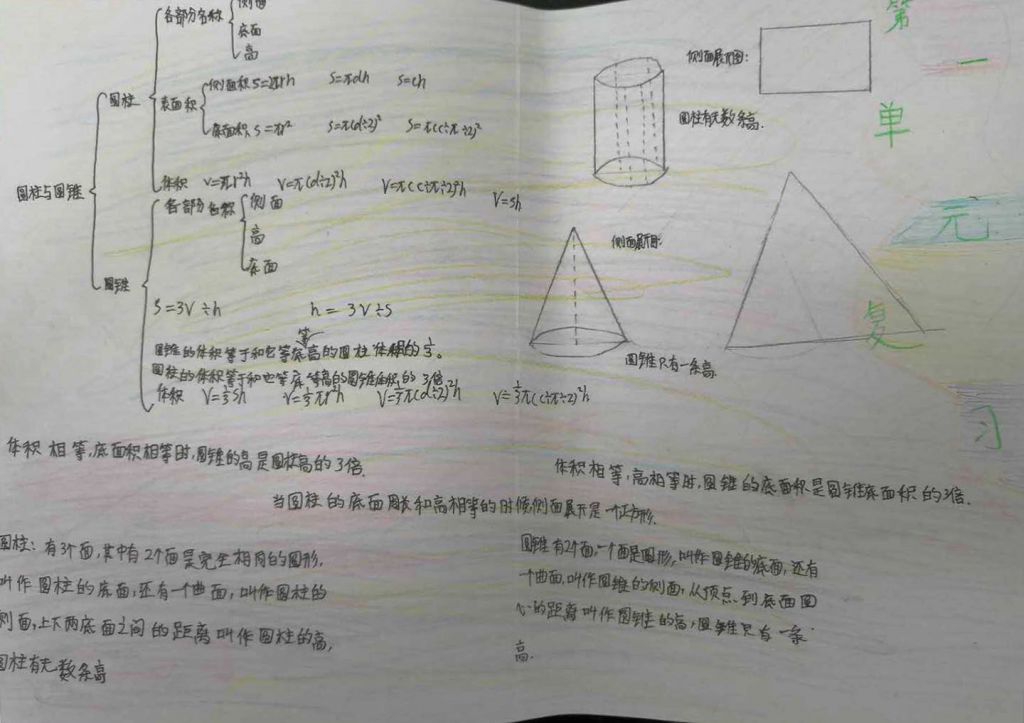 第一单元复习
圆柱与圆锥
圆柱
各部分名称
侧面
底面
高
表面积
侧面积 S=2πrh S=πdh S=ch
底面积 S=πr² S=π(d÷2)² S=π(c÷π÷2)²
体积 V=πr²h V=π(d÷2)²h V=π(c÷π÷2)²h V=sh
圆锥
各部分名称
侧面
高
底面
S=3V÷h h=3V÷s
圆锥的体积等于和它等底等高的圆柱体积的⅓。
圆柱的体积等于和它等底等高的圆锥体积的3倍
体积 V=⅓sh V=⅓πr²h V=⅓π(d÷2)²h V=⅓π(c÷π÷2)²h
侧面展开图:
圆柱有无数条高.
侧面展开图:
圆锥只有一条高.
体积相等,底面积相等时,圆锥的高是圆柱高的3倍.
体积相等,高相等时,圆锥的底面积是圆锥底面积的3倍.
当圆柱的底面周长和高相等的时候侧面展开是一个正方形.
圆柱:有3个面,其中有2个面是完全相同的圆形,
叫作圆柱的底面,还有一个曲面,叫作圆柱的
侧面,上下两底面之间的距离叫作圆柱的高,
圆柱有无数条高
圆锥有2个面,一个面是圆形,叫作圆锥的底面,还有
一个曲面,叫作圆锥的侧面,从顶点到底面圆
心的距离叫作圆锥的高,圆锥只有一条
高.